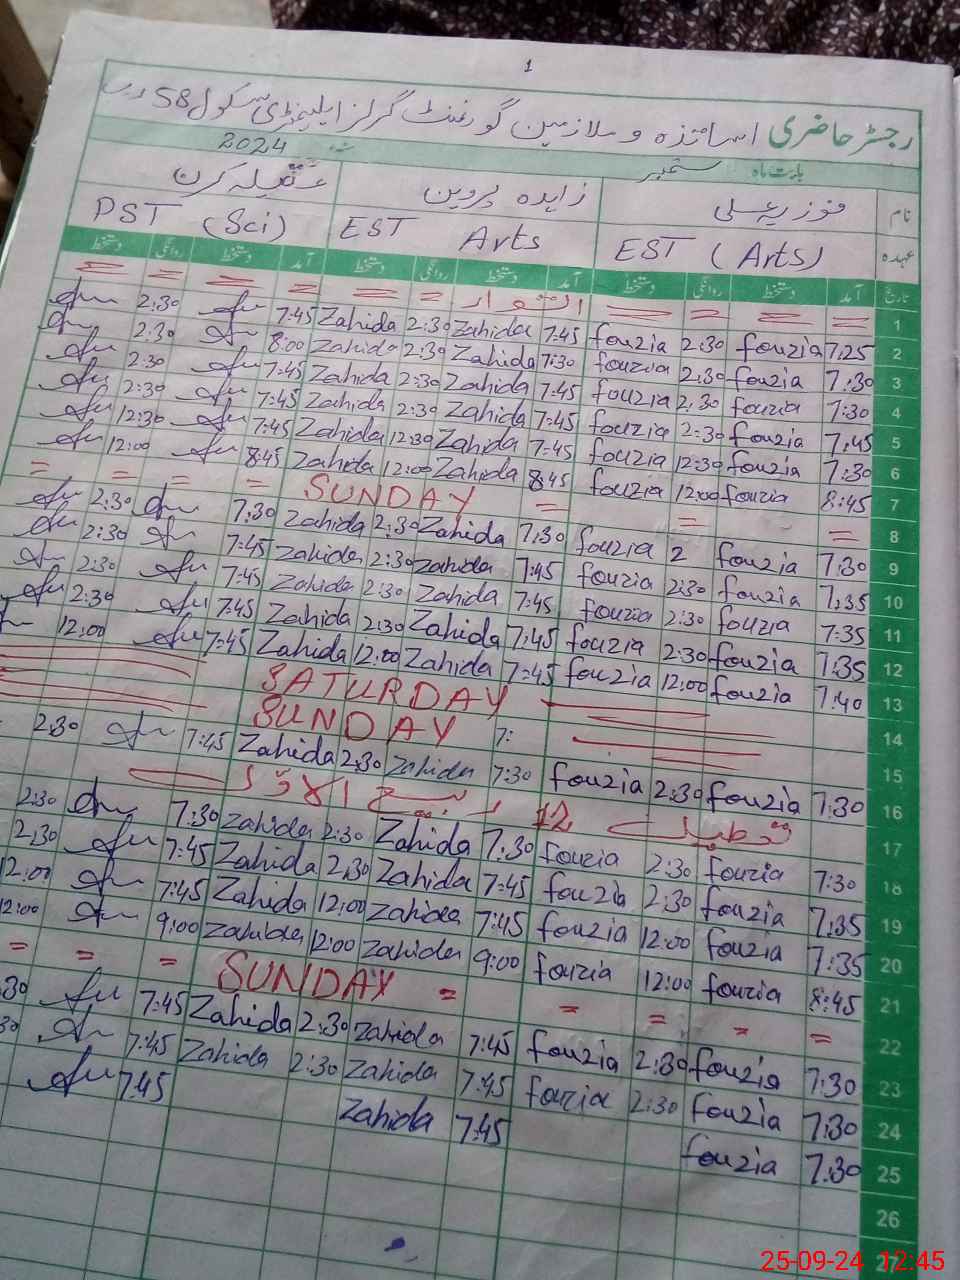 1
رجسٹر حاضری اساتذہ و ملازمین گورنمنٹ گرلز ایلیمنٹری سکول 58 ر ب
بابت ماہ ستمبر 2024
نام فوزیہ علی زاہدہ پروین عقیلہ کرن
عہدہ EST (Arts) EST Arts PST (Sci)
تاریخ آمد دستخط روانگی دستخط آمد دستخط روانگی دستخط آمد دستخط روانگی دستخط
1 = = = = اتوار = = = = = =
2 7:25 fouzia 2:30 fouzia 7:45 Zahida 2:30 Zahida 7:45 2:30
3 7:30 fouzia 2:30 fouzia 7:30 Zahida 2:30 Zahida 8:00 2:30
4 7:30 fouzia 2:30 fouzia 7:45 Zahida 2:30 Zahida 7:45 2:30
5 7:45 fouzia 2:30 fouzia 7:45 Zahida 2:30 Zahida 7:45 2:30
6 7:30 fouzia 12:30 fouzia 7:45 Zahida 12:30 Zahida 7:45 12:30
7 8:45 fouzia 12:00 fouzia 8:45 Zahida 12:00 Zahida 8:45 12:00
8 = = = SUNDAY = = = =
9 7:30 fouzia 2 fouzia 7:30 Zahida 2:30 Zahida 7:30 2:30
10 7:35 fouzia 2:30 fouzia 7:45 Zahida 2:30 Zahida 7:45 2:30
11 7:35 fouzia 2:30 fouzia 7:45 Zahida 2:30 Zahida 7:45 2:30
12 7:35 fouzia 2:30 fouzia 7:45 Zahida 2:30 Zahida 7:45 2:30
13 7:40 fouzia 12:00 fouzia 7:45 Zahida 12:00 Zahida 7:45 12:00
14 SATURDAY
15 7: SUNDAY
16 7:30 fouzia 2:30 fouzia 7:30 Zahida 2:30 Zahida 7:45 2:30
17 تعطیل 12 ربیع الاول
18 7:30 fouzia 2:30 fouzia 7:30 Zahida 2:30 Zahida 7:30 2:30
19 7:35 fouzia 2:30 fouzia 7:45 Zahida 2:30 Zahida 7:45 2:30
20 7:35 fouzia 12:00 fouzia 7:45 Zahida 12:00 Zahida 7:45 12:00
21 8:45 fouzia 12:00 fouzia 9:00 Zahida 12:00 Zahida 9:00 12:00
22 = = = = = SUNDAY = = =
23 7:30 fouzia 2:30 fouzia 7:45 Zahida 2:30 Zahida 7:45 30
24 7:30 fouzia 2:30 fouzia 7:45 Zahida 2:30 Zahida 7:45 30
25 7:30 fouzia 7:45 Zahida 7:45
26
27
25-09-24 12:45